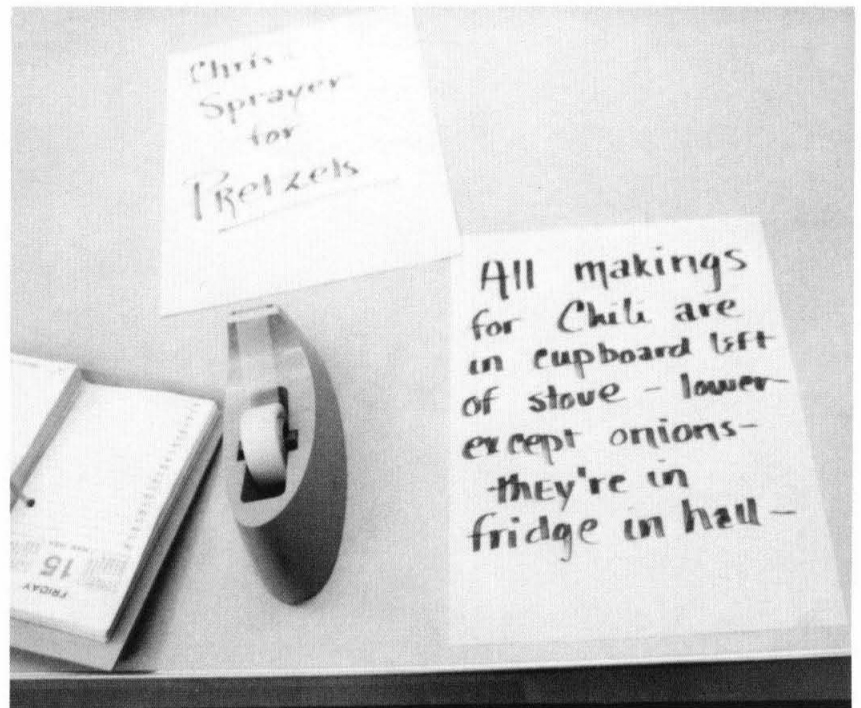 Chris
Sprayer
for
Pretzels
All makings
for Chili are
in cupboard left
of stove – lower
except onions–
they're in
fridge in hall –
15
FRIDAY